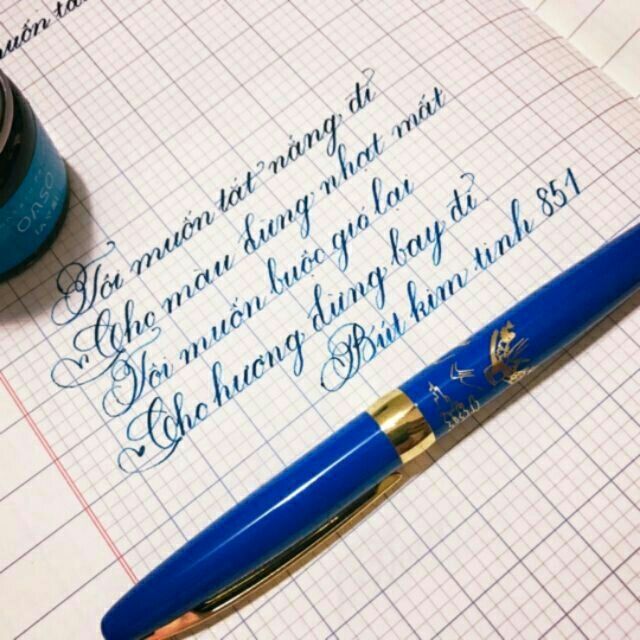 muốn tắt
OASO
Tôi muốn tắt nắng đi
Cho màu đừng nhạt mất
Tôi muốn buộc gió lại
Cho hương đừng bay đi
Bút kim tinh 851